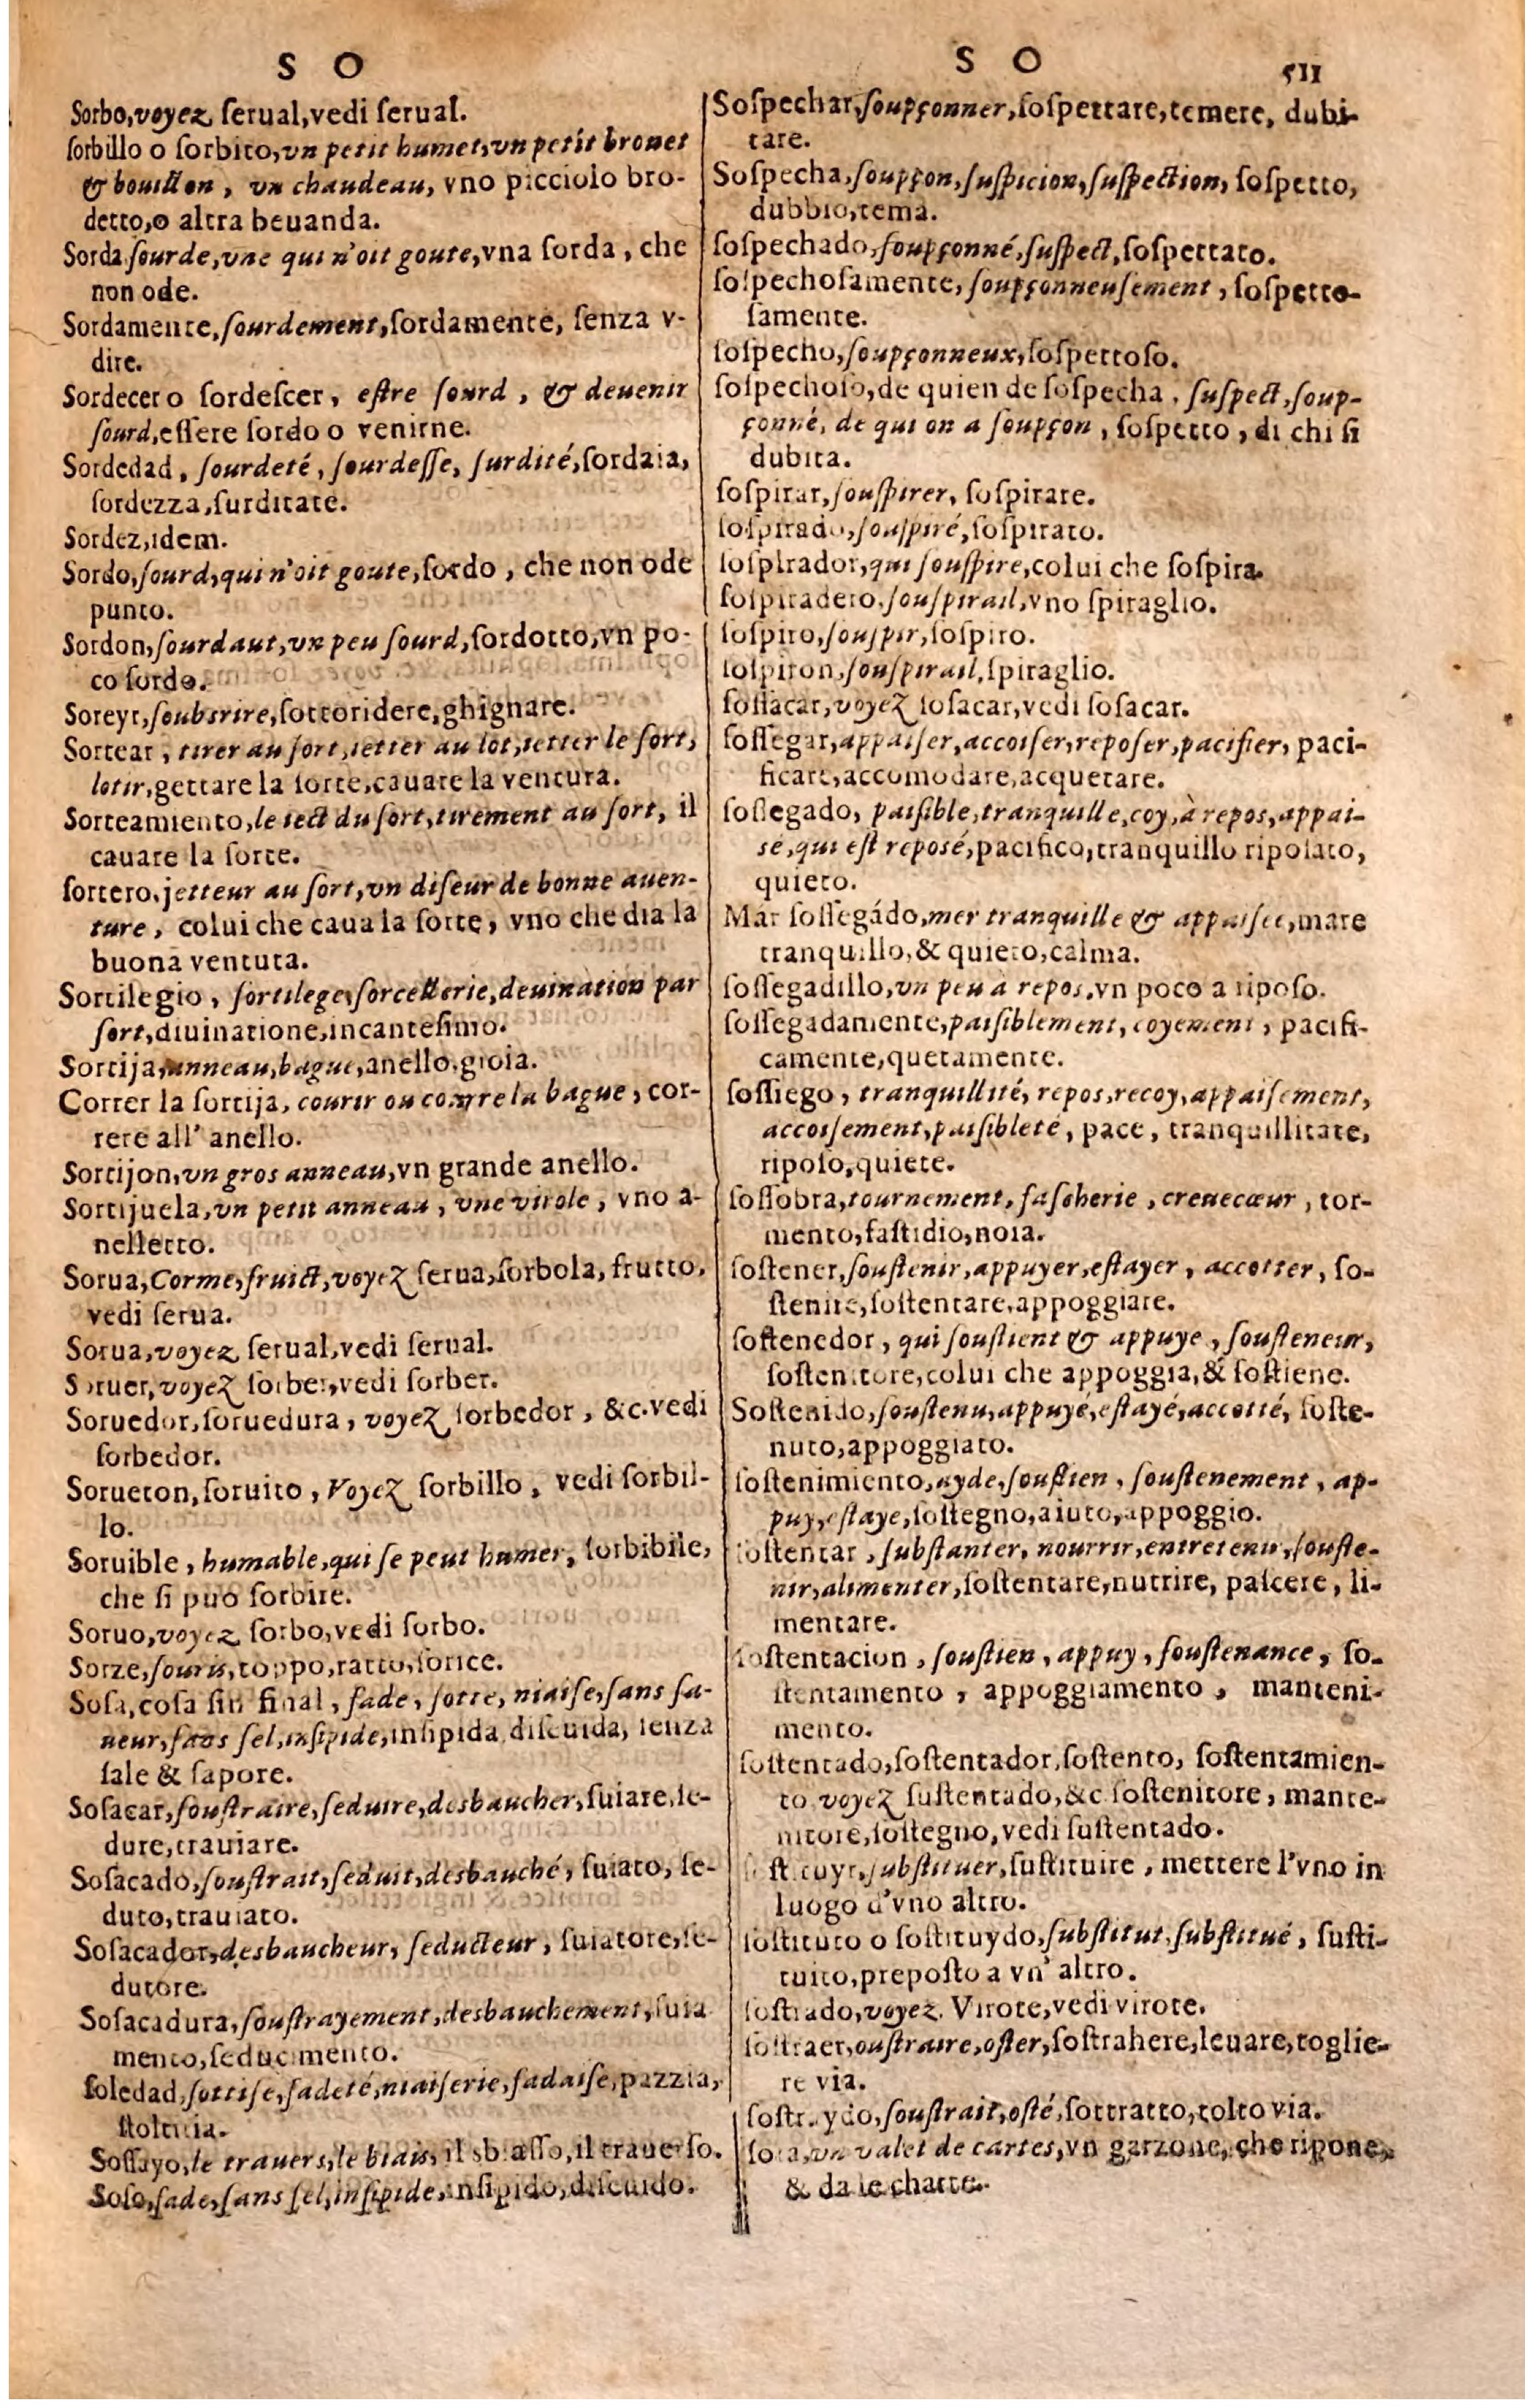 S O
Sorbo,voyez ſerual,vedi ſerual.
ſorbillo o ſorbito,vn petit humet,vn petit brouet
& bouillon, vn chaudeau, vno picciolo bro-
detto,o altra beuanda.
Sorda ſourde,vne qui n'oit goute,vna ſorda, che
non ode.
Sordamente,ſourdement,ſordamente, ſenza v-
dire.
Sordecer o ſordeſcer, eſtre ſourd, & deuenir
ſourd,eſſere ſordo o venirne.
Sordedad, ſourdeté, ſourdeſſe, ſurdité,ſordaia,
ſordezza,ſurditate.
Sordez,idem.
Sordo,ſourd,qui n'oit goute,ſordo, che non ode
punto.
Sordon,ſourdaut,vn peu ſourd,ſordotto,vn po-
co ſordo.
Soreyr,ſoubsrire,ſottoridere,ghignare.
Sortear, tirer au ſort,ietter au lot,ietter le ſort,
lotir,gettare la ſorte,cauare la ventura.
Sorteamiento,le iect du ſort,tirement au ſort, il
cauare la ſorte.
ſortero,jetteur au ſort,vn diſeur de bonne auen-
ture, colui che caua la ſorte, vno che dia la
buona ventura.
Sortilegio, ſortilege,ſorcellerie,deuination par
ſort,diuinatione,incanteſimo.
Sortija,anneau,bague,anello,gioia.
Correr la ſortija, courir ou corre la bague, cor-
rere all' anello.
Sortijon,vn gros anneau,vn grande anello.
Sortijuela,vn petit anneau, vne virole, vno a-
nelletto.
Sorua,Corme,fruict,voyez ſerua,ſorbola, frutto,
vedi ſerua.
Sorua,voyez ſerual,vedi ſerual.
Soruer,voyez ſorber,vedi ſorber.
Soruedor,ſoruedura, voyez ſorbedor, &c.vedi
ſorbedor.
Sorueton,ſoruito, Voyez ſorbillo, vedi ſorbil-
lo.
Soruible, humable,qui ſe peut humer, ſorbibile,
che ſi può ſorbire.
Soruo,voyez ſorbo,vedi ſorbo.
Sorze,ſouris,toppo,ratto,ſorice.
Soſa,coſa ſin ſinal, fade, ſotte, niaiſe,ſans ſa-
ueur,ſans ſel,inſipide,inſipida,diſcuida, ſenza
ſale & ſapore.
Soſacar,ſouſtraire,ſeduire,desbaucher,ſuiare,ſe-
dure,trauiare.
Soſacado,ſouſtrait,ſeduit,desbauché, ſuiato, ſe-
duto,trauiato.
Soſacador,desbaucheur, ſeducteur, ſuiatore,ſe-
dutore.
Soſacadura,ſouſtrayement,desbauchement,ſuia
mento,ſeducimento.
ſoſedad,ſottiſe,fadeté,niaiſerie,fadaiſe,pazzia,
ſtoltitia.
Soſſayo,le trauers,le biais, il sbiaſſo,il trauerſo.
Soſo,fade,ſans ſel,inſipide,inſipido,diſcuido.
S O 511
Soſpechar,ſoupçonner,ſoſpettare,temere, dubi-
tare.
Soſpecha,ſoupçon,ſuſpicion,ſuſpection, ſoſpetto,
dubbio,tema.
ſoſpechado,ſoupçonné,ſuſpect,ſoſpettato.
ſoſpechoſamente,ſoupçonneuſement, ſoſpetto-
ſamente.
ſoſpecho,ſoupçonneux,ſoſpettoſo.
ſoſpechoſo,de quien de ſoſpecha, ſuſpect,ſoup-
çonné, de qui on a ſoupçon, ſoſpetto, di chi ſi
dubita.
ſoſpirar,ſouſpirer, ſoſpirare.
ſoſpirado,ſouſpiré,ſoſpirato.
ſoſpirador,qui ſouſpire,colui che ſoſpira.
ſoſpiradero,ſouſpirail,vno ſpiraglio.
ſoſpiro,ſouſpir,ſoſpiro.
ſoſpiron,ſouſpirail,ſpiraglio.
ſoſſacar,voyez ſoſacar,vedi ſoſacar.
ſoſſegar,appaiſer,accoiſer,repoſer,pacifier, paci-
ficare,accomodare,acquetare.
ſoſſegado, paiſible,tranquille,coy,à repos,appai-
sé,qui eſt reposé,pacifico,tranquillo ripoſato,
quieto.
Mar ſoſſegádo,mer tranquille & appaiſee,mare
tranquillo,& quieto,calma.
ſoſſegadillo,vn peu à repos,vn poco a ripoſo.
ſoſſegadamente,paiſiblement, coyement, pacifi-
camente,quetamente.
ſoſſiego, tranquillité, repos,recoy,appaiſement,
accoiſement,paiſibleté, pace, tranquillitate,
ripoſo,quiete.
ſoſſobra,tournement,faſcherie, creuecœur, tor-
mento,faſtidio,noia.
ſoſtener,ſouſtenir,appuyer,eſtayer, accotter, ſo-
ſtenire,ſoſtentare,appoggiare.
ſoſtenedor, qui ſouſtient & appuye, ſouſteneur,
ſoſtenitore,colui che appoggia,& ſoſtiene.
Soſtenido,ſouſtenu,appuyé,eſtayé,accotté, ſoſte-
nuto,appoggiato.
ſoſtenimiento,ayde,ſouſtien, ſouſtenement, ap-
puy,eſtaye,ſoſtegno,aiuto,appoggio.
ſoſtentar, ſubſtanter, nourrir,entretenir,ſouſte-
nir,alimenter,ſoſtentare,nutrire, paſcere, li-
mentare.
ſoſtentacion, ſouſtien, appuy, ſouſtenance, ſo-
ſtentamento, appoggiamento, manteni-
mento.
ſoſtentado,ſoſtentador,ſoſtento, ſoſtentamien-
to voyez ſuſtentado,&c ſoſtenitore, mante-
nitore,ſoſtegno,vedi ſuſtentado.
ſoſtituyr,ſubſtituer,ſuſtituire, mettere l'vno in
luogo d'vno altro.
ſoſtituto o ſoſtituydo,ſubſtitut,ſubſtitué, ſuſti-
tuito,prepoſto a vn' altro.
ſoſtrado,voyez. Virote,vedi virote.
ſoſtraer,ouſtraire,oſter,ſoſtrahere,leuare,toglie-
re via.
ſoſtraydo,ſouſtrait,oſté,ſottratto,tolto via.
ſota,vn valet de cartes,vn garzone, che ripone,
& da le chatte.